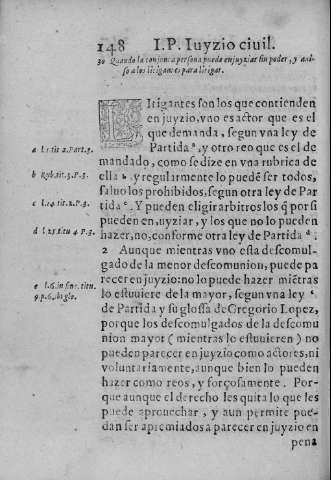 148 I.P. Iuyzio ciuil.
30 Quando la conjunta persona puede enjuyziar sin poder, y aui-
so a los litigantes para litigar.
LItigantes son los que contienden
en juyzio, vno es actor que es el
que demanda, segun vna ley de
Partida a, y otro reo que es el de
mandado, como se dize en vna rubrica de
ella b, y regularmente lo puedẽ ser todos,
saluo los prohibidos, segun otra ley de Par
tida c. Y pueden eligir arbitros los q̃ por si
pueden enjuyziar, y los que no lo pueden
hazer, no, conforme otra ley de Partida d.
2 Aunque mientras vno esta descomul-
gado de la menor descomunion, puede pa
recer en juyzio: no lo puede hazer miẽtras
lo estuuiere de la mayor, segun vna ley e
de Partida y su glossa de Gregorio Lopez,
porque los descomulgados de la descomu
nion mayor (mientras lo estuuieren) no
pueden parecer en juyzio como actores, ni
voluntariamente, aunque bien lo pueden
hazer como reos, y forçosamente. Por-
que aunque el derecho les quita lo que les
puede aprouechar, y aun permite pue-
dan ser apremiados a parecer en juyzio en
pena
a l.1. tit 2. Part. 3.
b Rub. tit. 3. P. 3.
c l.14. tit. 2. P. 3.
d l. 25. titu 4. P. 3.
e l.6. in fine. titu.
9. p. 6. ibi glo.